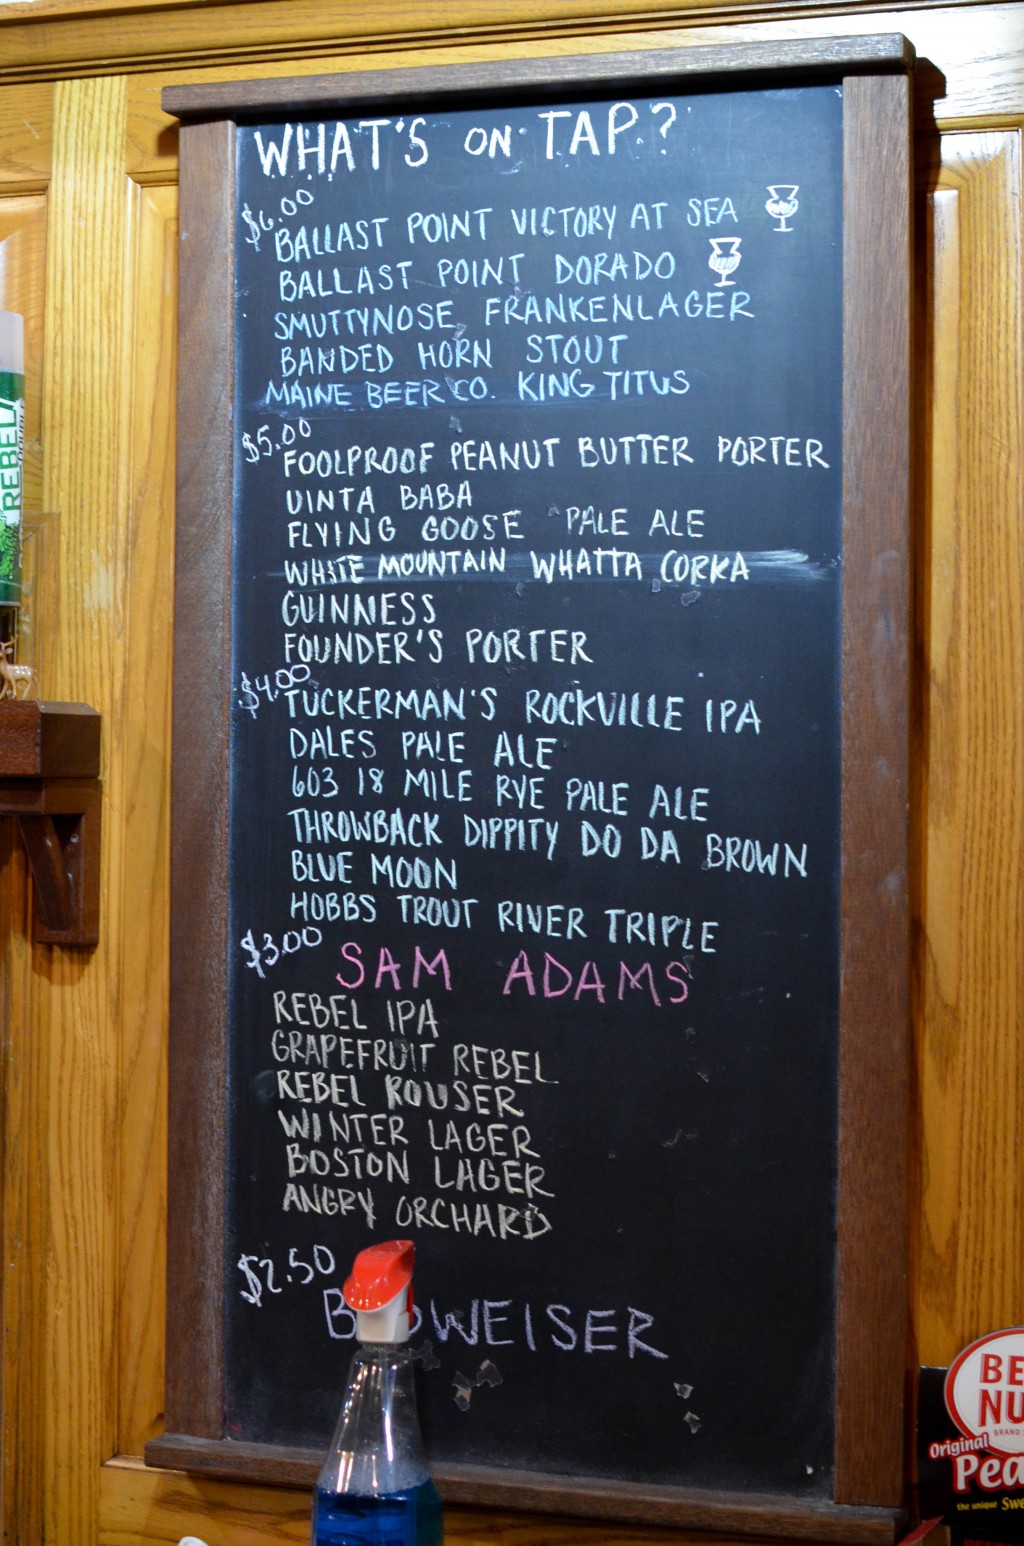 WHAT'S ON TAP?
$6.00
BALLAST POINT VICTORY AT SEA
BALLAST POINT DORADO
SMUTTYNOSE FRANKENLAGER
BANDED HORN STOUT
MAINE BEER CO. KING TITUS
$5.00
FOOLPROOF PEANUT BUTTER PORTER
UINTA BABA
FLYING GOOSE PALE ALE
WHITE MOUNTAIN WHATTA CORKA
GUINNESS
FOUNDER'S PORTER
$4.00
TUCKERMAN'S ROCKVILLE IPA
DALES PALE ALE
603 18 MILE RYE PALE ALE
THROWBACK DIPPITY DO DA BROWN
BLUE MOON
HOBBS TROUT RIVER TRIPLE
$3.00
SAM ADAMS
REBEL IPA
GRAPEFRUIT REBEL
REBEL ROUSER
WINTER LAGER
BOSTON LAGER
ANGRY ORCHARD
$2.50
BUDWEISER
REBEL
BE
NU
BRAND
Original
Pea
the unique Swe